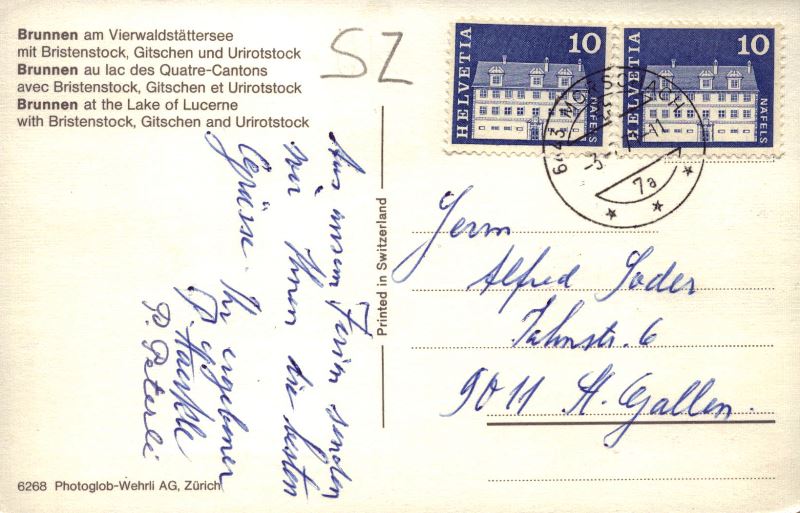 Brunnen am Vierwaldstättersee
mit Bristenstock, Gitschen und Urirotstock
Brunnen au lac des Quatre-Cantons
avec Bristenstock, Gitschen et Urirotstock
Brunnen at the Lake of Lucerne
with Bristenstock, Gitschen and Urirotstock
SZ
HELVETIA 10 NÄFELS
HELVETIA 10 NÄFELS
6443 MORSCHACH
7a
Aus unsern Ferien senden
wir Ihnen die besten
Grüsse. Ihr ergebener
P. Peterli
Printed in Switzerland
Herrn
Alfred Soder
Jahnstr. 6
9011 St. Gallen.
6268 Photoglob-Wehrli AG, Zürich